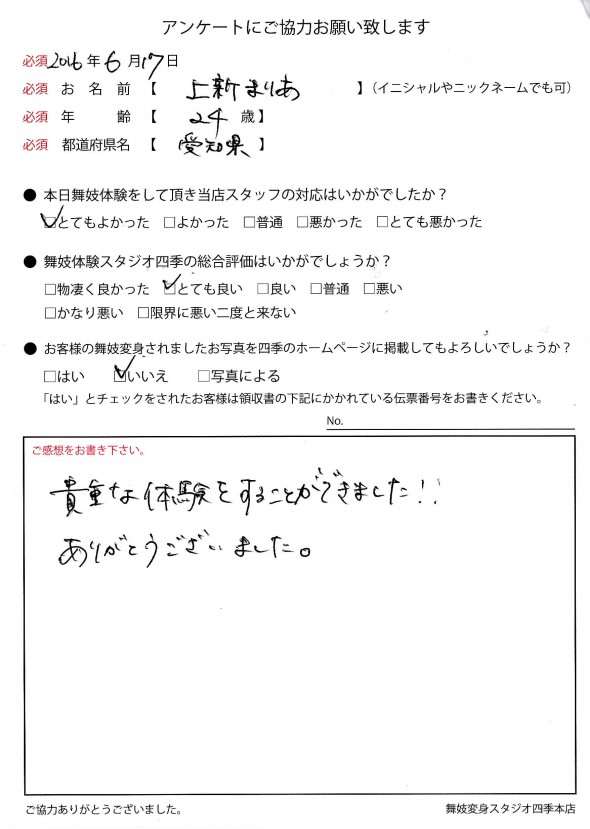 アンケートにご協力お願い致します
必須 2016年6月17日
必須 お 名 前 【 上新まりあ 】（イニシャルやニックネームでも可）
必須 年 齢 【 24 歳】
必須 都道府県名 【 愛知県 】
● 本日舞妓体験をして頂き当店スタッフの対応はいかがでしたか？
☑とてもよかった □よかった □普通 □悪かった □とても悪かった
● 舞妓体験スタジオ四季の総合評価はいかがでしょうか？
□物凄く良かった ☑とても良い □良い □普通 □悪い
□かなり悪い □限界に悪い二度と来ない
● お客様の舞妓変身されましたお写真を四季のホームページに掲載してもよろしいでしょうか？
□はい ☑いいえ □写真による
「はい」とチェックをされたお客様は領収書の下記にかかれている伝票番号をお書きください。
No.
ご感想をお書き下さい。
貴重な体験をすることができました!!
ありがとうございました。
ご協力ありがとうございました。 舞妓変身スタジオ四季本店